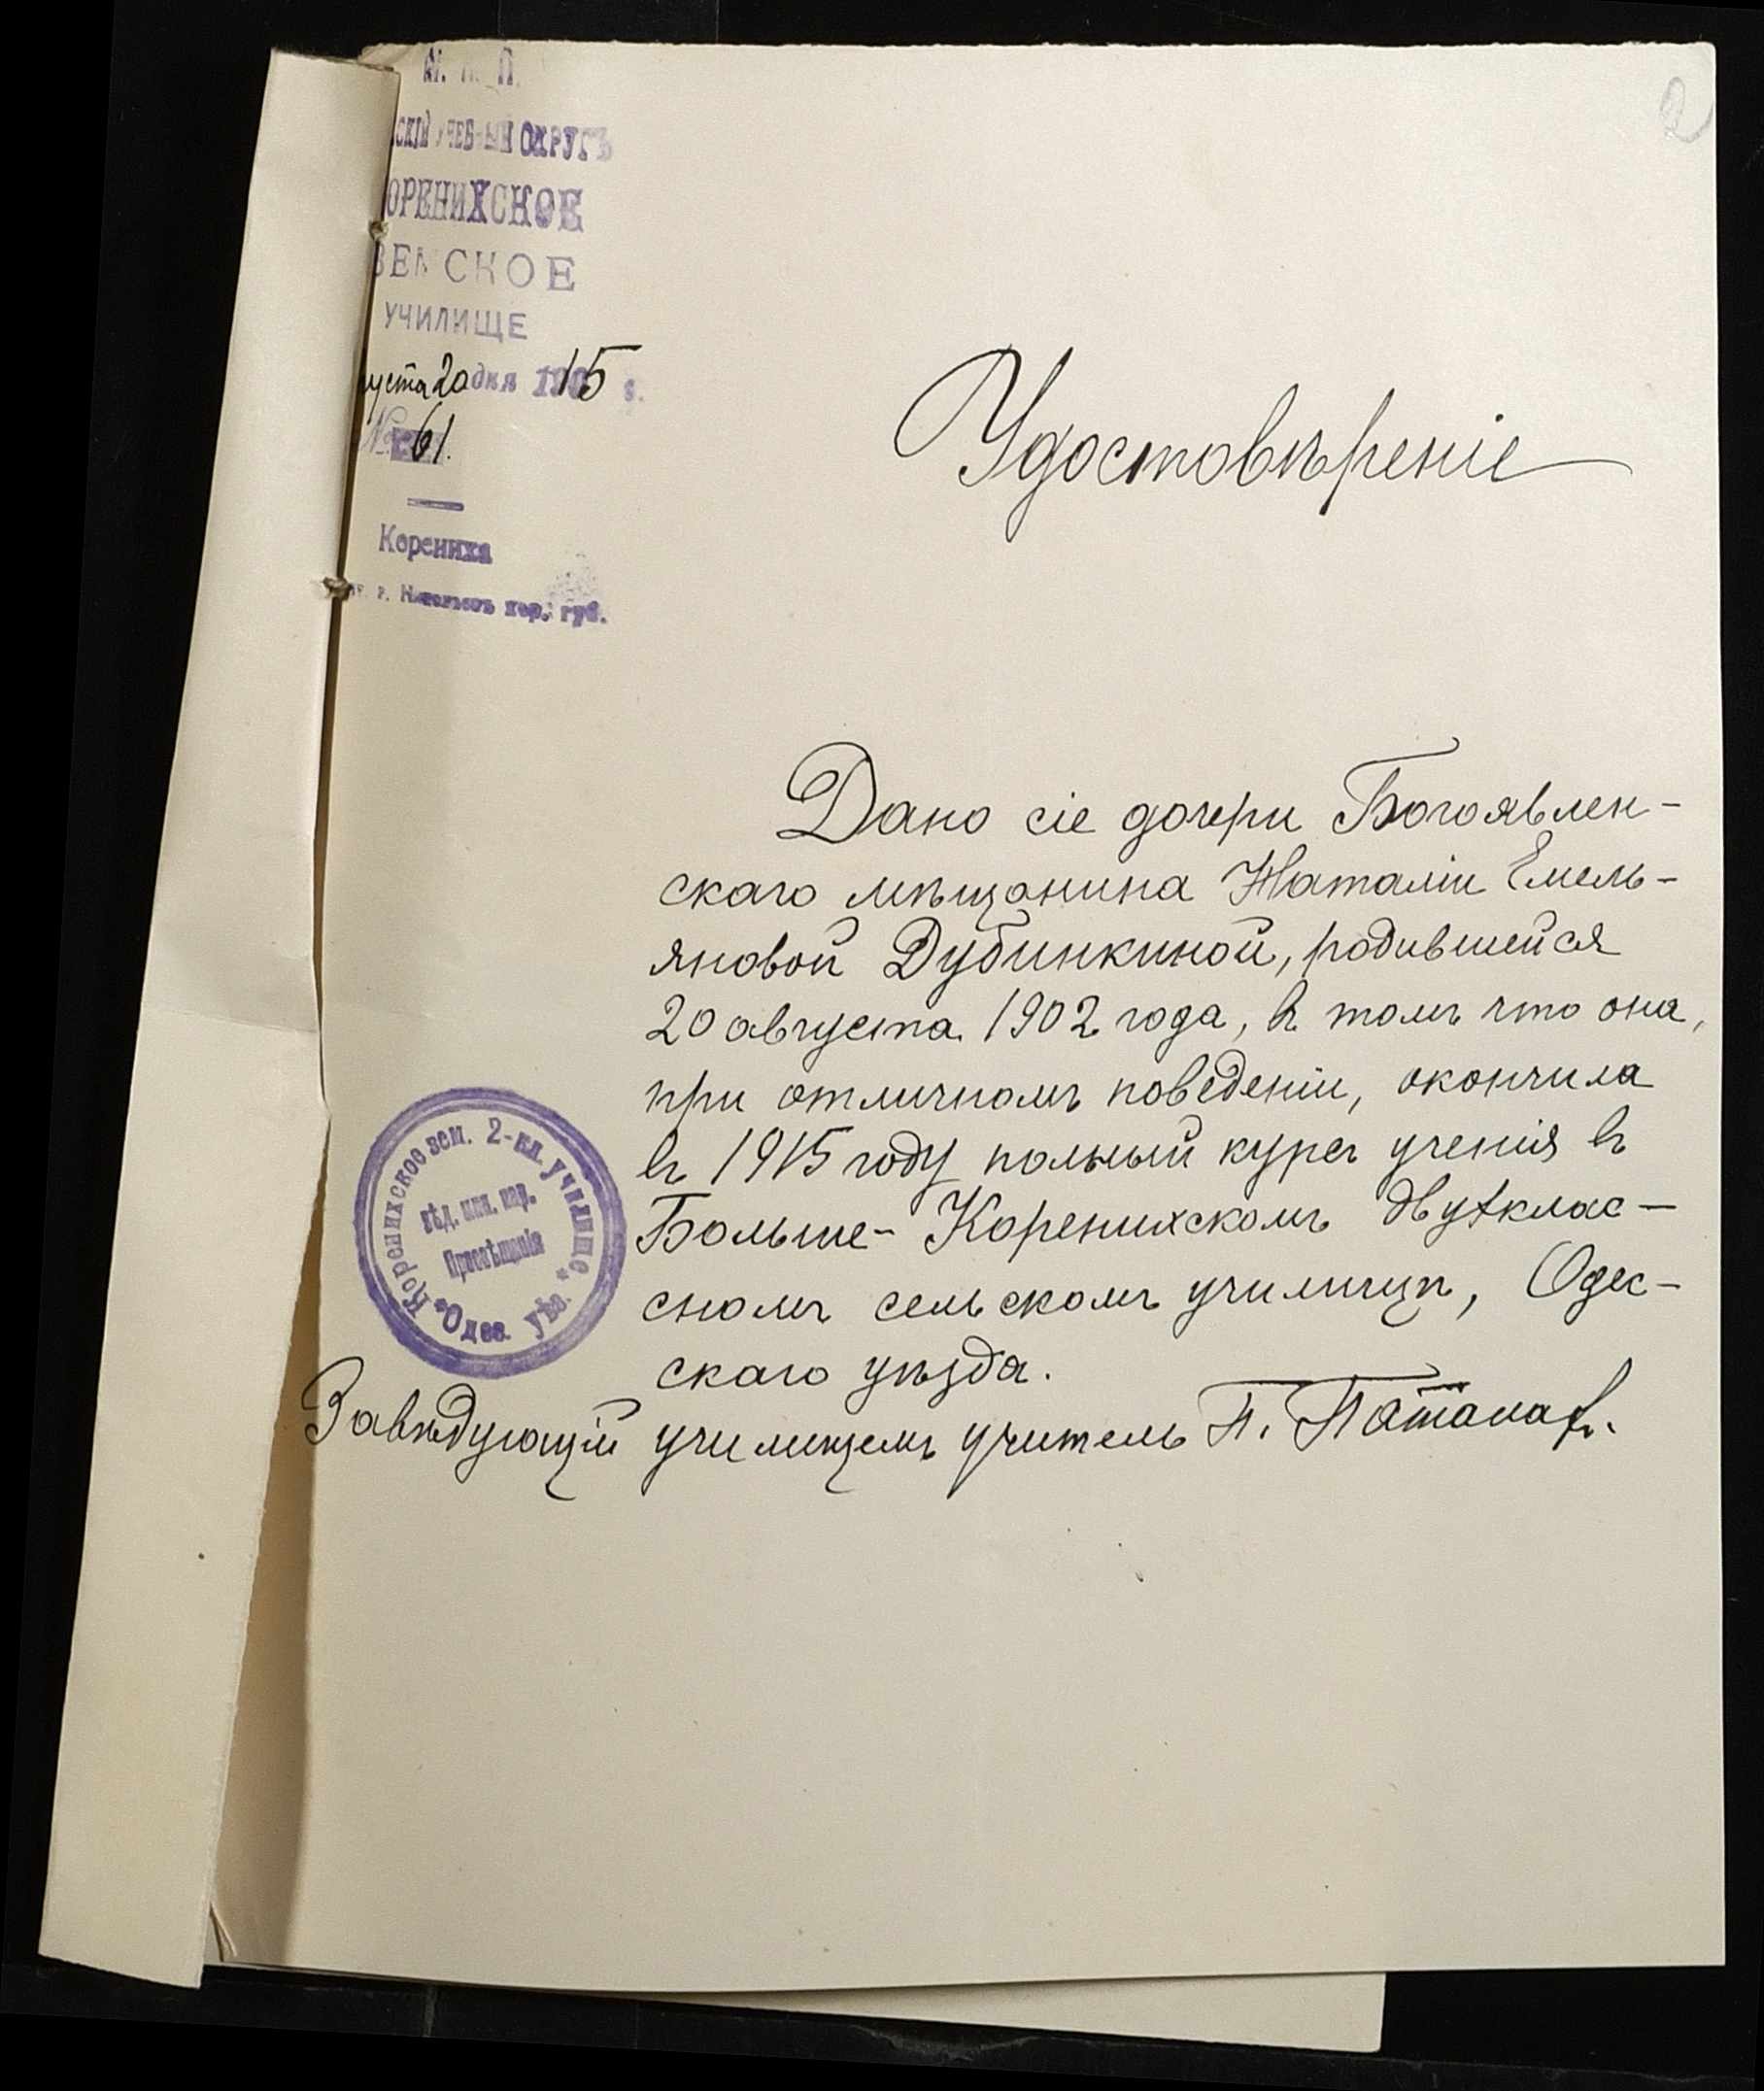 2
М. Н. П.
СКІЙ УЧЕБНЫЙ ОКРУГЪ
ОРЕНИХСКОЕ
ЗЕМСКОЕ
УЧИЛИЩЕ
уста 20 дня 1915 г.
№ 61.
Корениха
г. Николаевъ хер. губ.
Удостовѣреніе
Дано сіе дочери Богоявлен-
скаго мѣщанина Наталіи Емель-
яновой Дубинкиной, родившейся
20 августа 1902 года, въ томъ что она,
при отличномъ поведеніи, окончила
въ 1915 году полный курсъ ученія въ
Больше-Коренихскомъ двухклас-
сномъ сельскомъ училищѣ, Одес-
скаго уѣзда.
Коренихское зем. 2-кл. училище
*Одес. уѣз.*
вѣд. мин. нар.
Просвѣщенія
Завѣдующій училищемъ учитель П.